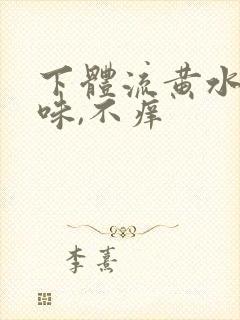 下體流黄水
味,不痒
李熹